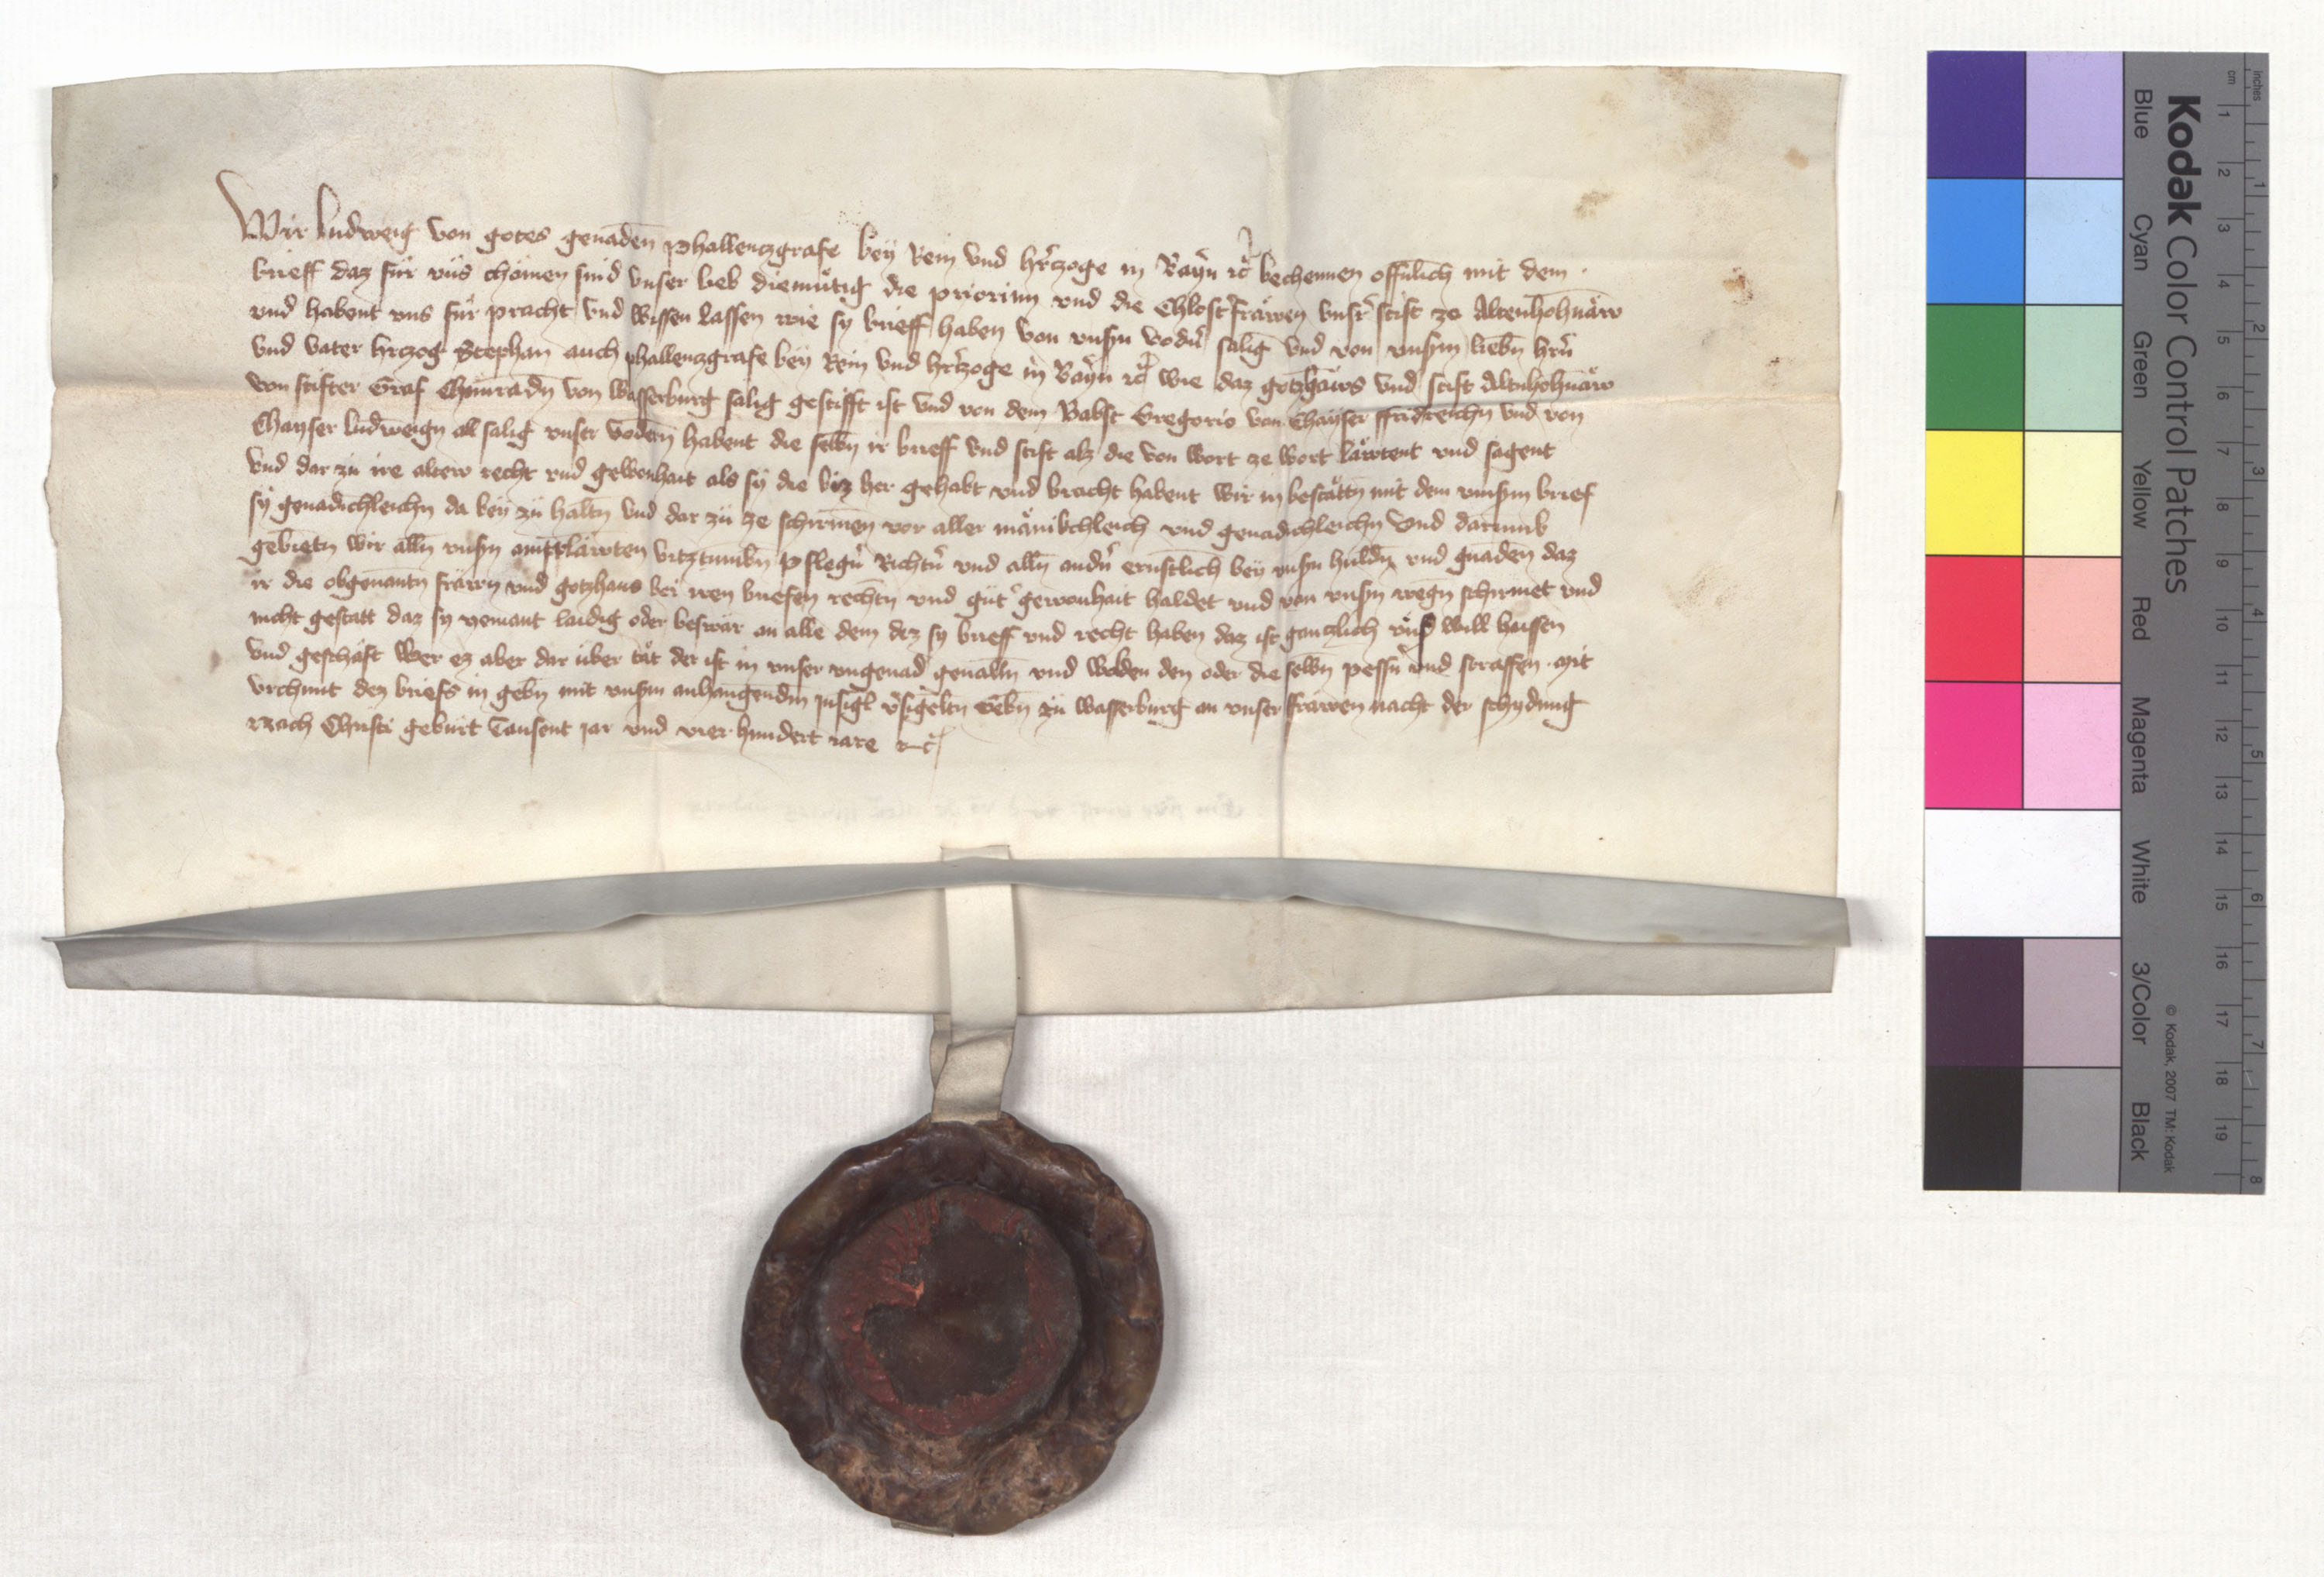 Wir Ludweig von gotes genadē Phallenczgrafe bey Rein vnd hr̄czoge in Bayrn̄ ꝛc̄ bechennen offnlich mit dem
brieff daz für vns chömen sind vnser lieb diemütig die priorinn vnd die Chlostr̄frawen vnsr̄ stift ze Altenhohnaw
vnd habent vns für pracht vnd wissen lassen wie sy brieff haben von vnsn vodn̄ salig vnd von vnsm liebn̄ hrn̄
vnd vater hrczog Stephan auch phallenczgrafe bey Rein vnd hr̄czoge in Bayrn̄ ꝛc̄ wie daz gotzhaws vnd stift Altnhohnaw
von stifter Graf Chunradn̄ von Wasserburg salig gestifft ist vnd von dem Babst Gregorio von Chayser ffridreichn vnd von
Chayser ludweign all salig vnser vodern habent die selbn ir brieff vnd stift alz die von wort ze wort lawtent vnd sagent
vnd dar zu ire altew recht vnd gewonhait als sy die biz her gehabt vnd bracht habent wir in bestättn mit dem vnsm brief
sy genadichleichn da bey zu haltn vnd dar zu ze schirmen vor aller mänikchleich vnd genadichleichn Vnd darumb
gebietn wir alln vnsn amptläwten vitztumbn pflegn̄ Richtn̄ vnd alln andn̄ ernstlich bey vnsn huldn vnd gnaden daz
ir die obgenantn frawn vnd gotzhaus bei iren briefen rechtn vnd gut gewonhait haldet vnd von vnsn wegn schirmet vnd
nicht gestatt daz sy yemant laidig oder beswär an alle dem dez sy brieff vnd recht haben daz ist gantzlich vnsr̄ will haissen
vnd geschäft Wer ez aber dar über tät der ist in vnser vngenad genalln vnd wolden den oder die selbn pessn̄ vnd straffen mit
vrchunt dez briefs in gebn mit vnsm anhangendm Insigl v̄sigeltn Gebn zu wasserburg an vnser ffrawen nacht der schydung
Nach Christi geburt Tausent jar vnd vier hundert iare ꝛc̄
Kodak Color Control Patches
Blue Cyan Green Yellow Red Magenta White 3/Color Black
© Kodak, 2007 TM: Kodak
inches 1 2 3 4 5 6 7 8
cm 1 2 3 4 5 6 7 8 9 10 11 12 13 14 15 16 17 18 19